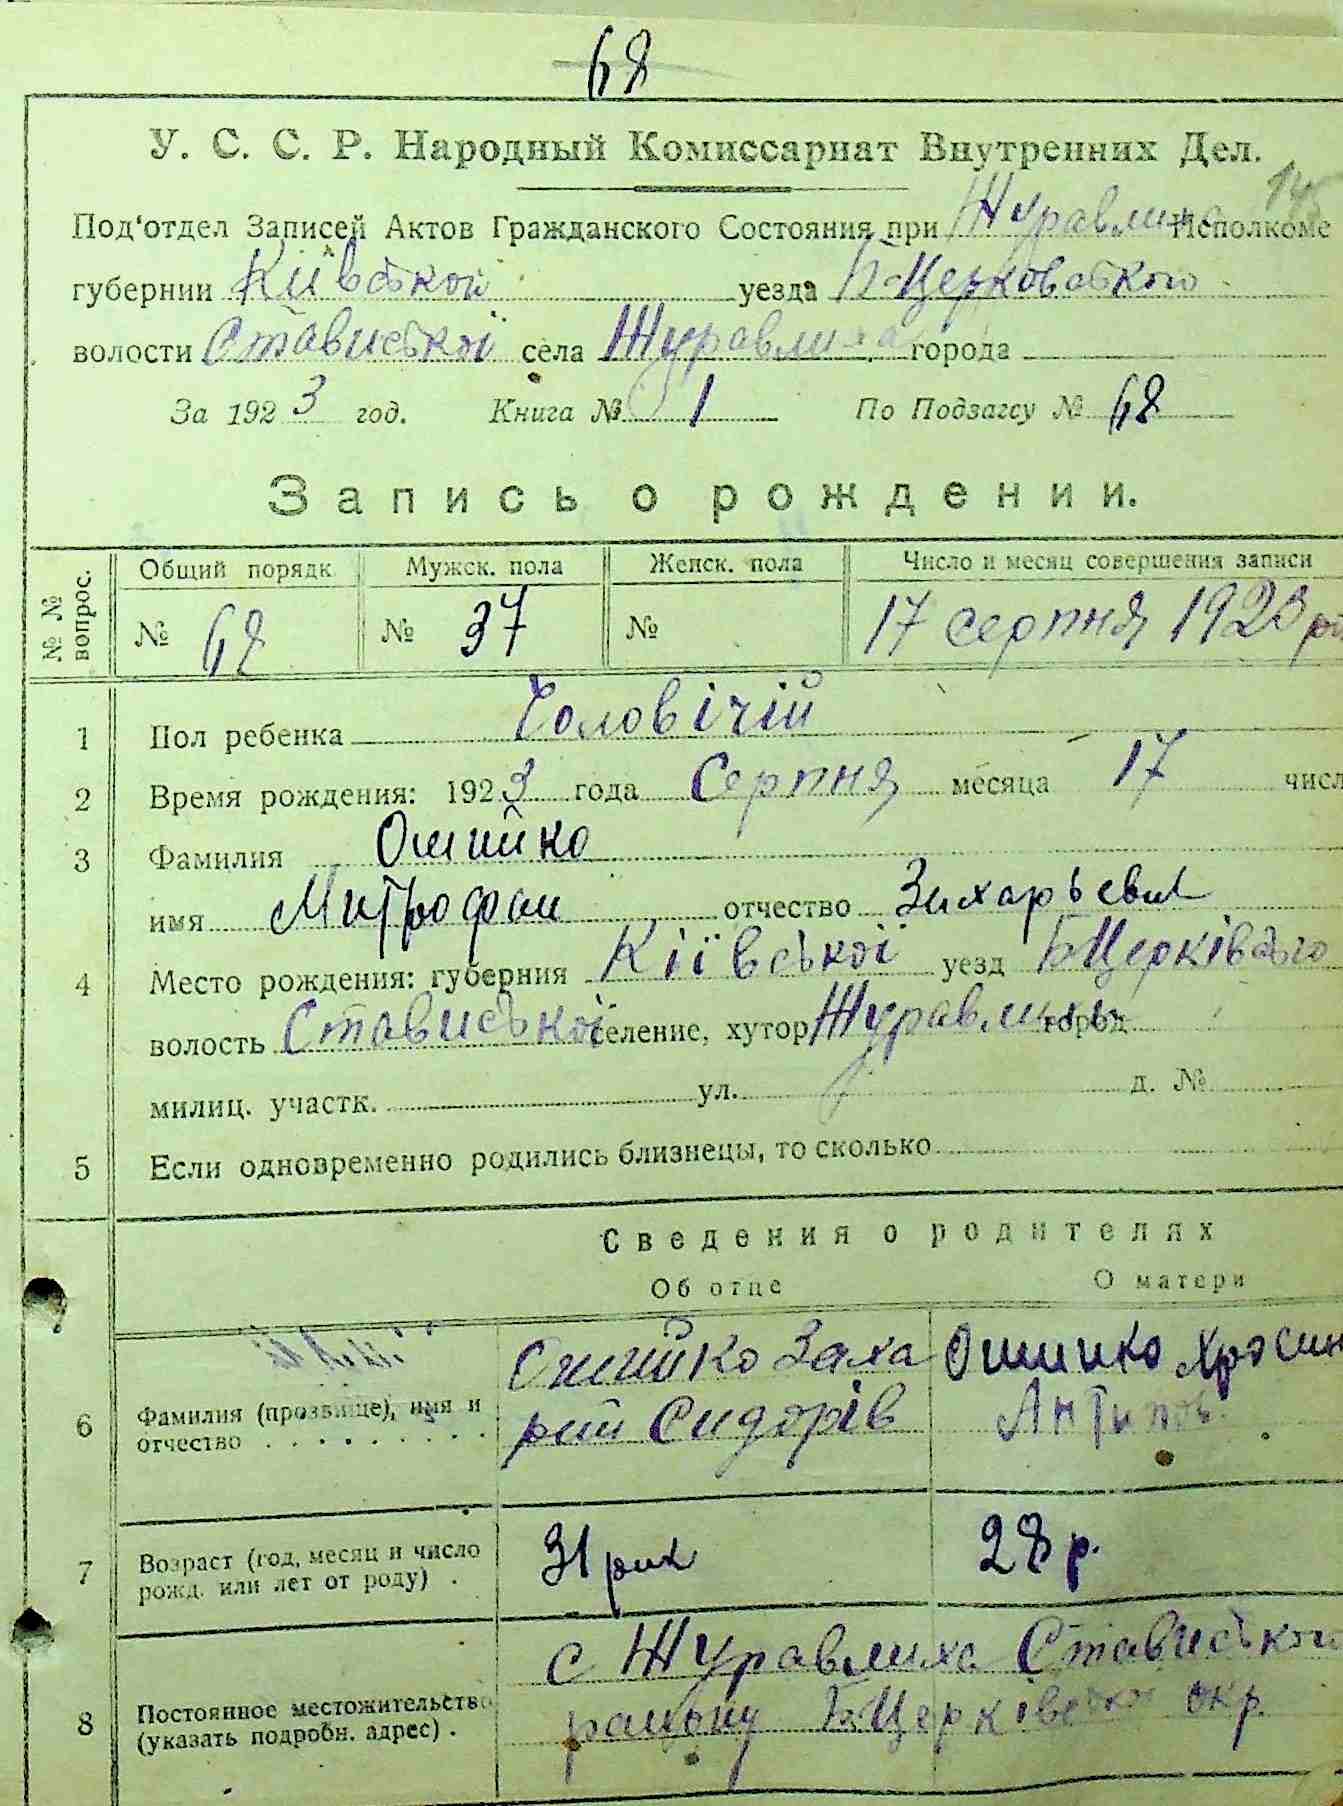 68
У. С. С. Р. Народный Комиссариат Внутренних Дел.
145
Под'отдел Записей Актов Гражданского Состояния при Журавлиха Исполкоме
губернии Київської уезда Б-Церковського
волости Стависької села Журавлиха города
За 1923 год. Книга № 1 По Подзагсу № 68
Запись о рождении.
№ № вопрос. Общий порядк Мужск. пола Женск. пола Число и месяц совершения записи
№ 68 № 37 № 17 серпня 1923
1 Пол ребенка Чоловічій
2 Время рождения: 1923 года Серпня месяца 17 числ
3 Фамилия Ошийко
имя Митрофан отчество Захарьевич
4 Место рождения: губерния Кіївської уезд Б Церківського
волость Стависької селение, хутор Журавлиха город
милиц. участк. ул. д. №
5 Если одновременно родились близнецы, то сколько
Сведения о родителях
Об отце О матери
6 Фамилия (прозвище), имя и отчество
Ошийко Заха
рий Сидорів
Ошийко Хросин
Антипов.
7 Возраст (год, месяц и число рожд. или лет от роду) . 31 рик 28 р.
8 Постоянное местожительство (указать подробн. адрес) .
с Журавлиха Стависької
району Б Церківської окр.